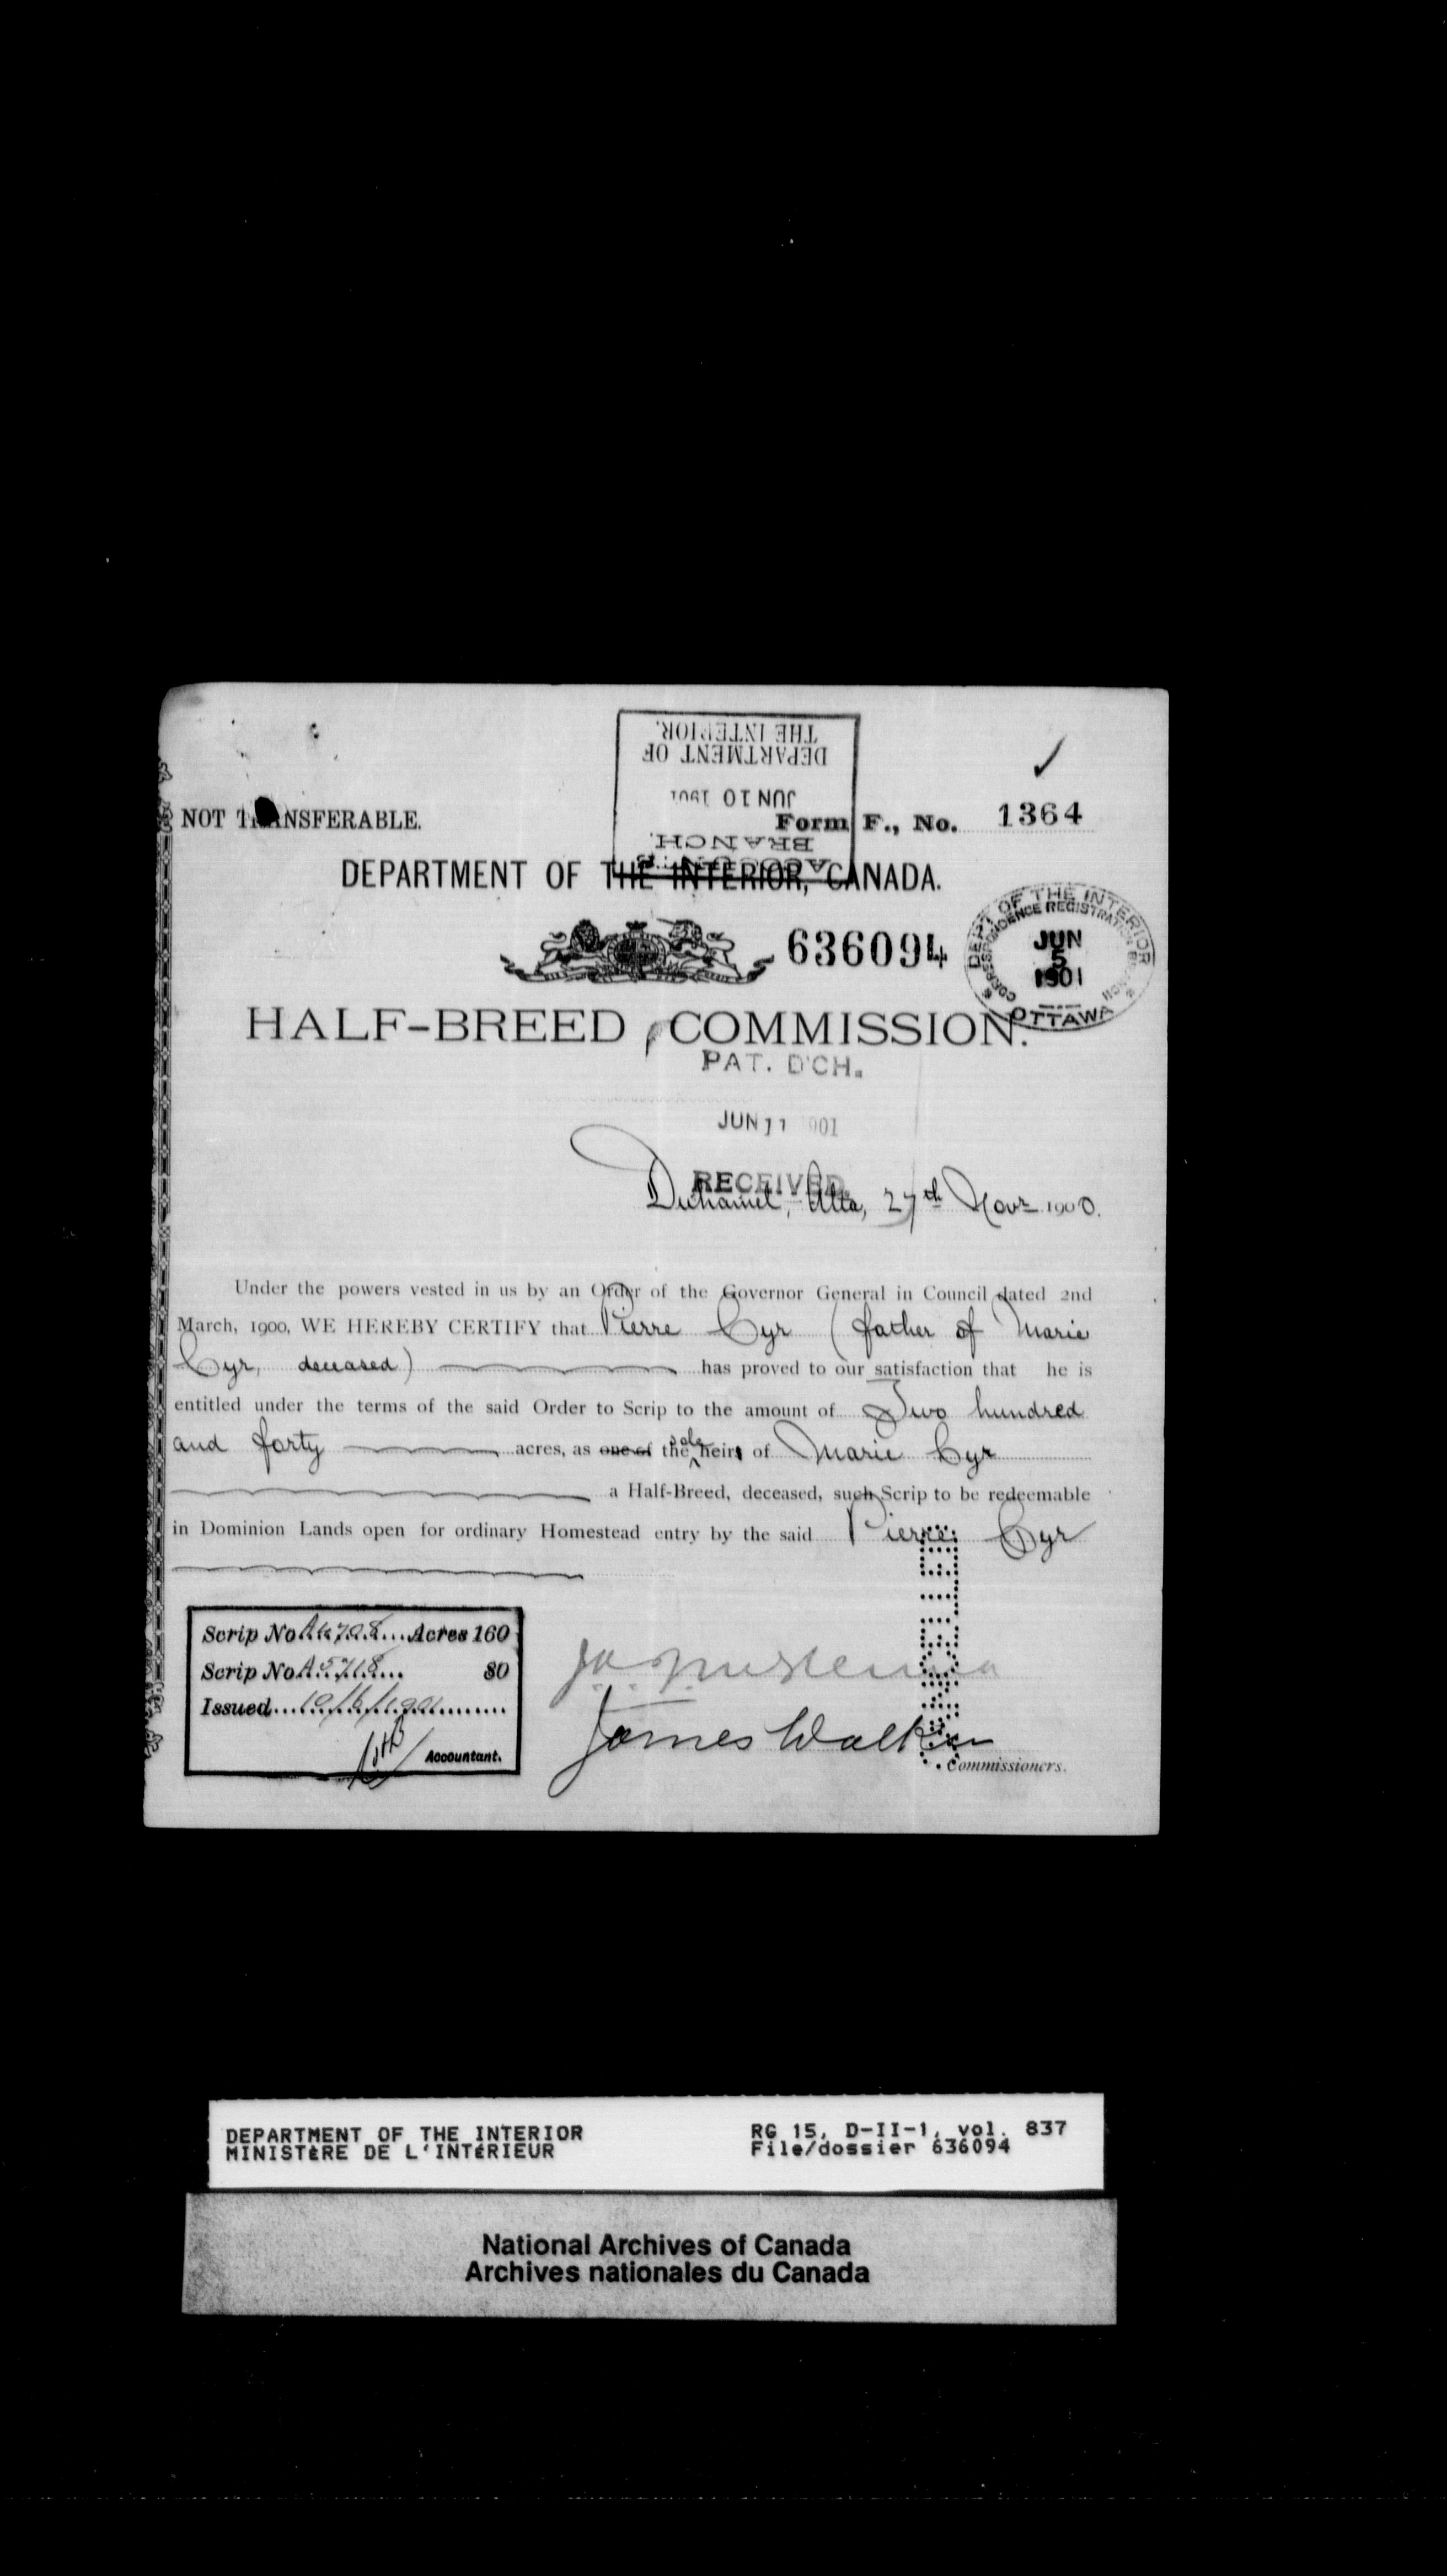 THE INTERIOR.
DEPARTMENT OF
JUN 10 1901
BRANCH.
NOT TRANSFERABLE.
Form F., No. 1364
DEPARTMENT OF THE INTERIOR, CANADA.
636094
DEPT OF THE INTERIOR
CORRESPONDENCE REGISTRATION BRANCH
JUN
5
1901
OTTAWA
HALF-BREED COMMISSION.
PAT. D'CH.
JUN 11 1901
RECEIVED.
Duhamel, Alta, 27th Novr 1900.
Under the powers vested in us by an Order of the Governor General in Council dated 2nd
March, 1900, WE HEREBY CERTIFY that Pierre Cyr (father of Marie
Cyr, deceased) has proved to our satisfaction that he is
entitled under the terms of the said Order to Scrip to the amount of Two hundred
and forty acres, as one of the sole heirs of Marie Cyr
a Half-Breed, deceased, such Scrip to be redeemable
in Dominion Lands open for ordinary Homestead entry by the said Pierre Cyr
CANCELLED
Scrip No. Acres 160
Scrip No. A 5718 80
Issued 10/6/1901
Accountant.
James Walker
Commissioners.
DEPARTMENT OF THE INTERIOR
MINISTÈRE DE L'INTÉRIEUR
RG 15, D-II-1, vol. 837
File/dossier 636094
National Archives of Canada
Archives nationales du Canada